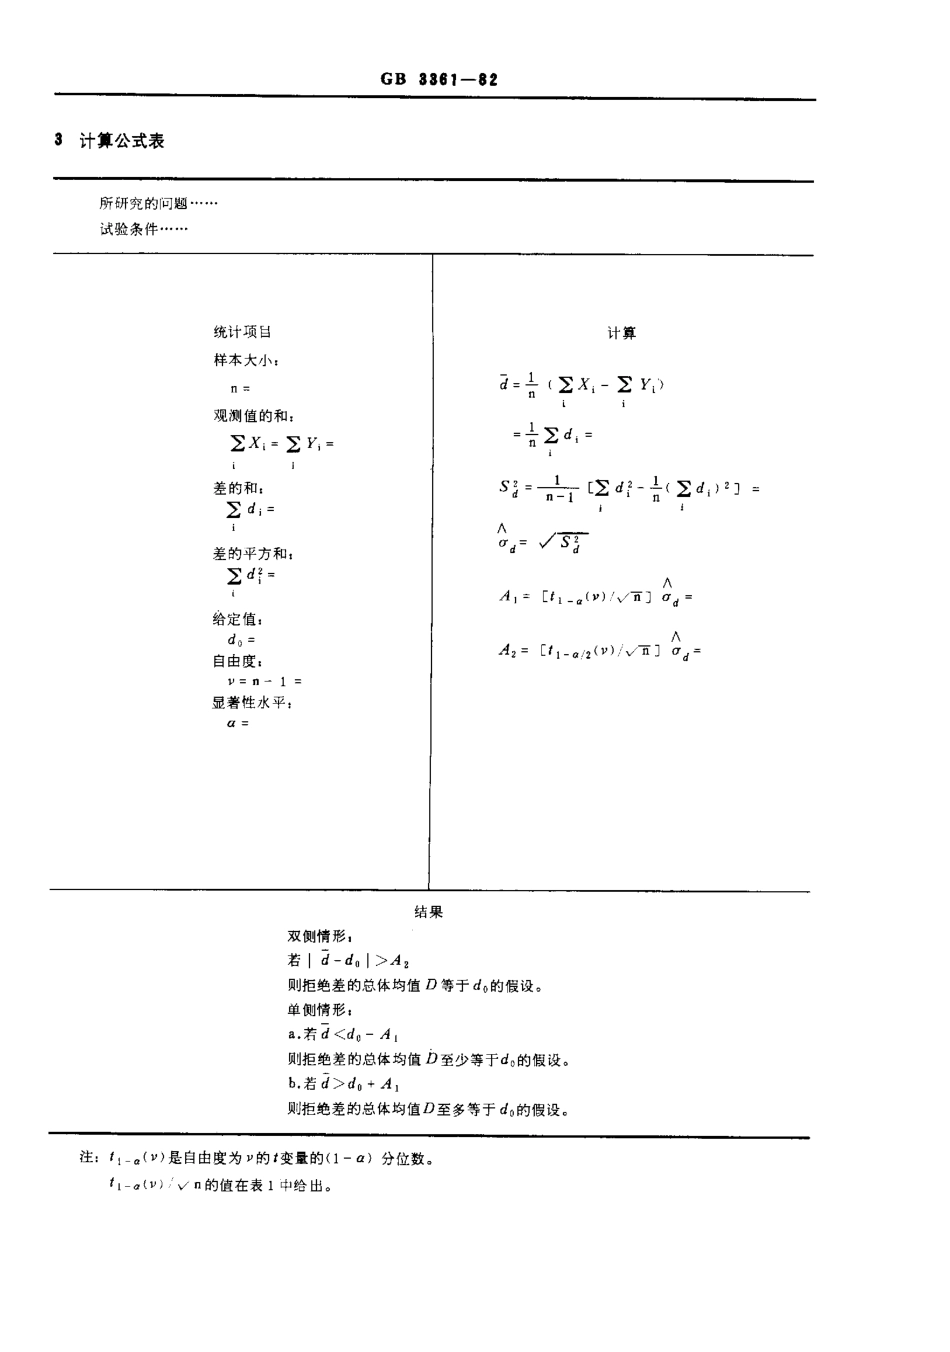 GB 3361—82
3 计算公式表
所研究的问题……
试验条件……
统计项目
样本大小:
n =
观测值的和:
∑Xᵢ = ∑Yᵢ =
i i
差的和:
∑dᵢ =
i
差的平方和:
∑dᵢ² =
i
给定值:
d₀ =
自由度:
ν = n - 1 =
显著性水平:
α =
计算
d̄ = 1/n (∑Xᵢ - ∑Yᵢ)
i i
= 1/n ∑dᵢ =
i
S²_d = 1/(n-1) [∑dᵢ² - 1/n(∑dᵢ)²] =
i i
σ̂_d = √S²_d
A₁ = [t₁₋α(ν)/√n] σ̂_d =
A₂ = [t₁₋α/₂(ν)/√n] σ̂_d =
结果
双侧情形:
若|d̄ - d₀|>A₂
则拒绝差的总体均值D等于d₀的假设。
单侧情形:
a.若d̄<d₀ - A₁
则拒绝差的总体均值D至少等于d₀的假设。
b.若d̄>d₀ + A₁
则拒绝差的总体均值D至多等于d₀的假设。
注: t₁₋α(ν)是自由度为ν的t变量的(1 - α) 分位数。
t₁₋α(ν)/√n的值在表1中给出。